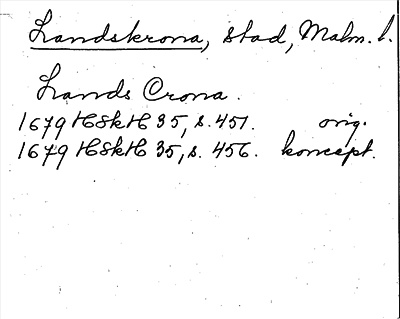 Landskrona, stad, Malm. l.
Lands Crona.
1679 HSkH 35, s. 451. orig.
1679 HSkH 35, s. 456. koncept.